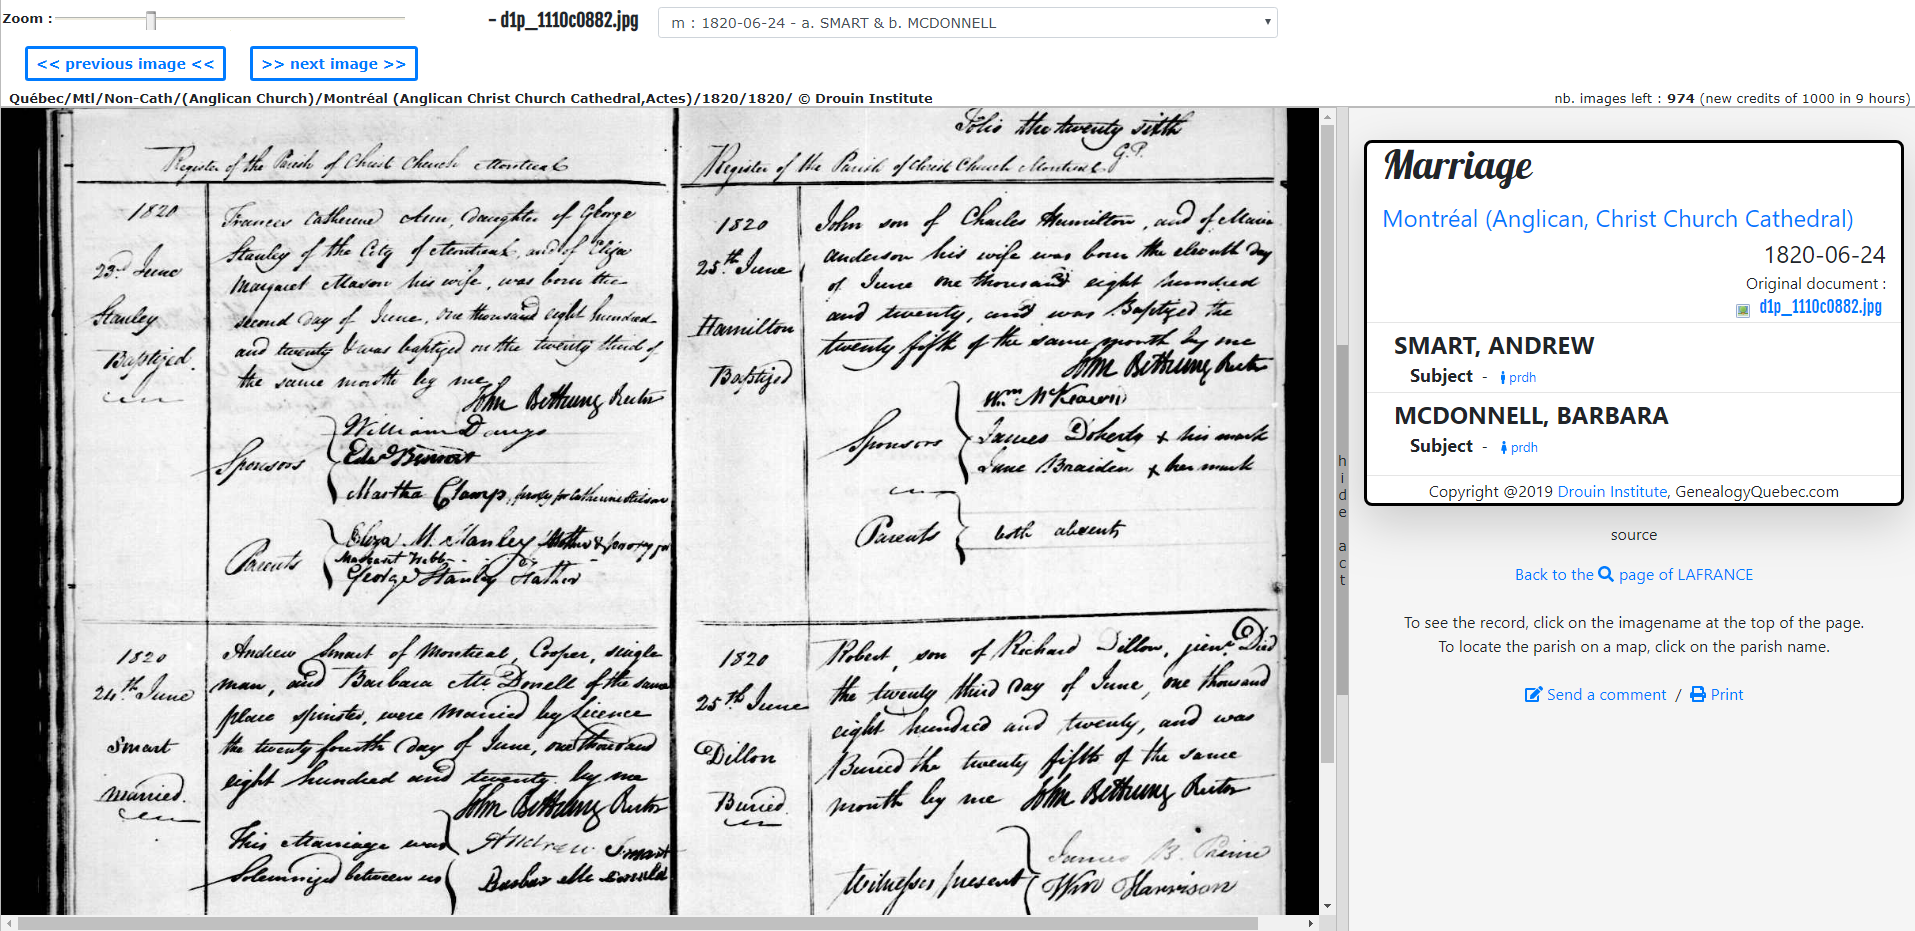 Zoom :
- d1p_1110c0882.jpg
m : 1820-06-24 - a. SMART & b. MCDONNELL
<< previous image <<
>> next image >>
Québec/Mtl/Non-Cath/(Anglican Church)/Montréal (Anglican Christ Church Cathedral,Actes)/1820/1820/ © Drouin Institute
nb. images left : 974 (new credits of 1000 in 9 hours)
Register of the Parish of Christ Church Montreal
1820
23d June
Stanley
Baptized.
Frances Catherine Ann, daughter of George
Stanley of the City of Montreal, and of Eliza
Margaret Mason his wife, was born the
second day of June, one thousand eight hundred
and twenty & was baptized on the twenty third of
the same month by me
John Bethune Rector
Sponsors
William
Martha Clamp, proxy for Catherine
Parents
Eliza M. Stanley Mother & proxy for
Margaret Webb
George Stanley Father
1820
24th June
Smart
Married.
Andrew Smart of Montreal, Cooper, single
man, and Barbara Mc Donell of the same
place spinster, were married by Licence
the twenty fourth day of June, one thousand
eight hundred and twenty. by me
John Bethune Rector
This Marriage was
Solemnized between us
Andrew Smart
Barbara Mc Donald
Folio the twenty sixth
G.P.
Register of the Parish of Christ Church Montreal
1820
25th June
Hamilton
Baptized
John son of Charles Hamilton, and of Maria
anderson his wife was born the eleventh day
of June one thousand eight hundred
and twenty, and was Baptized the
twenty fifth of the same month by me
John Bethune Rector
Sponsors
Wm McKeown
James Doherty x his mark
Jane Braiden x her mark
Parents
both absent
1820
25th June
Dillon
Buried
Robert, son of Richard Dillon, junr. Died
the twenty third day of June, one thousand
eight hundred and twenty, and was
Buried the twenty fifth of the same
month by me John Bethune Rector
Witnesses present
James B.
Wm Harrison
hide act
Marriage
Montréal (Anglican, Christ Church Cathedral)
1820-06-24
Original document :
d1p_1110c0882.jpg
SMART, ANDREW
Subject - prdh
MCDONNELL, BARBARA
Subject - prdh
Copyright @2019 Drouin Institute, GenealogyQuebec.com
source
Back to the page of LAFRANCE
To see the record, click on the imagename at the top of the page.
To locate the parish on a map, click on the parish name.
Send a comment / Print